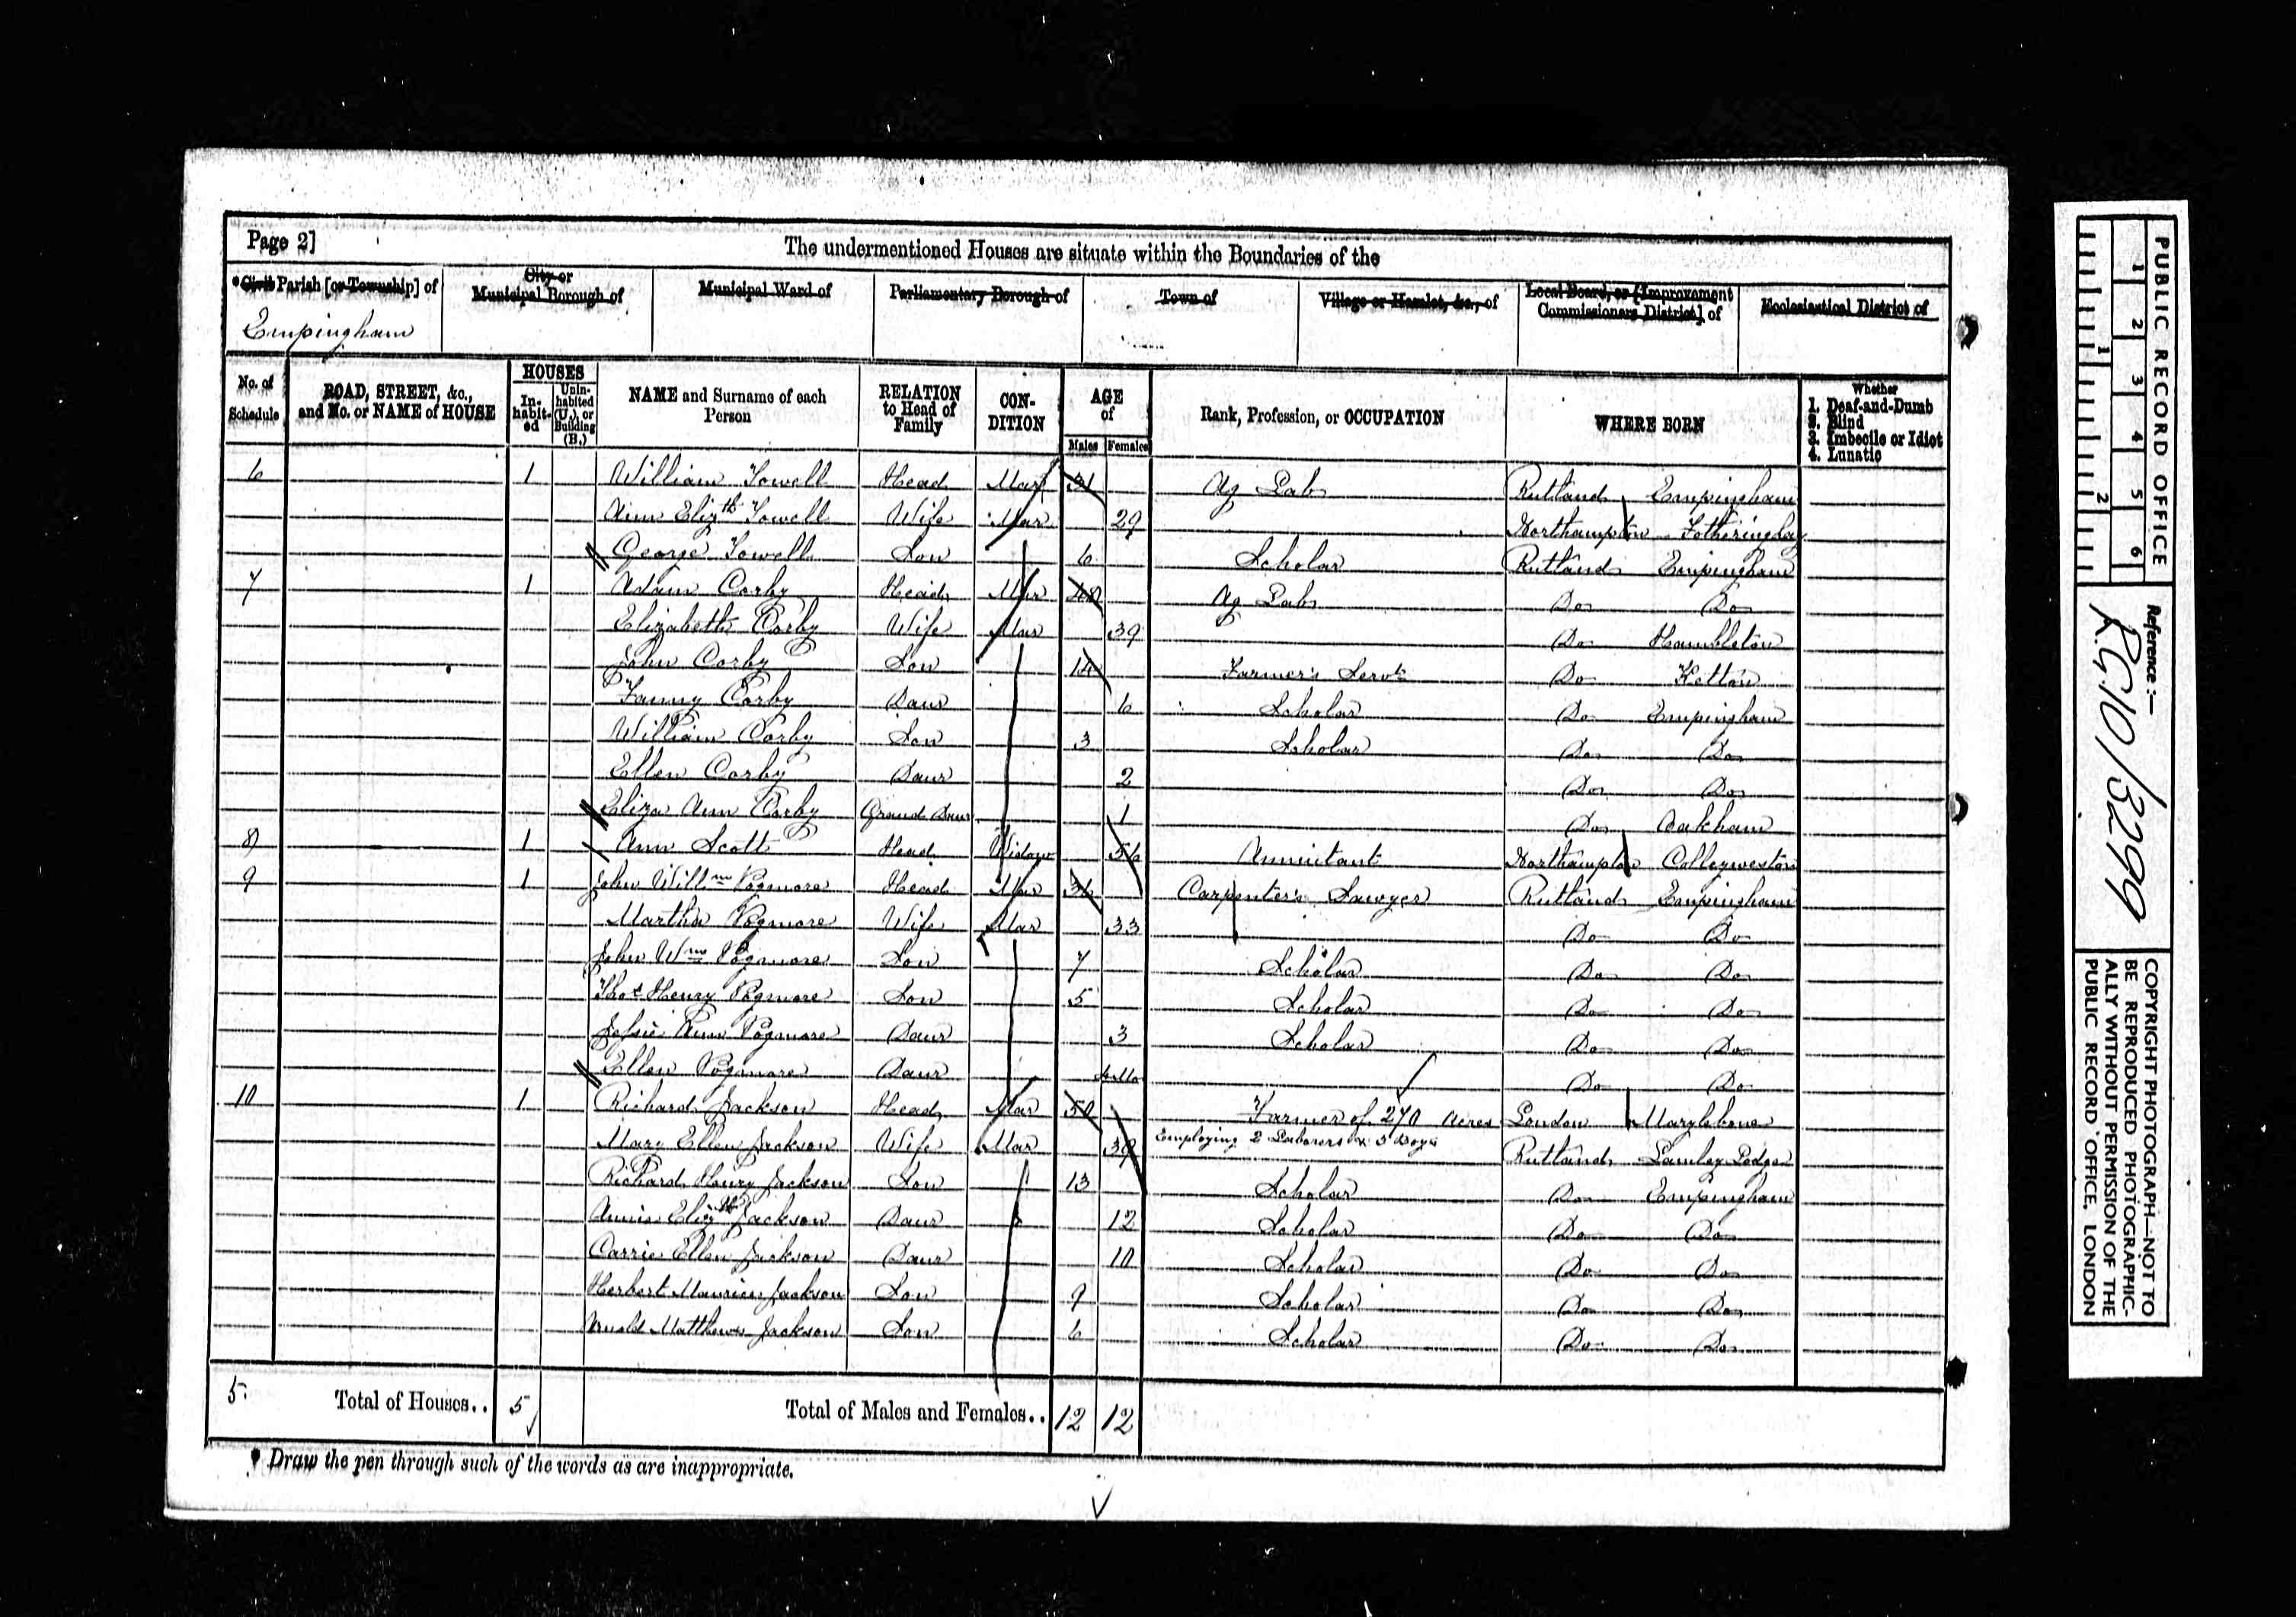 Page 2]
The undermentioned Houses are situate within the Boundaries of the
*Civil Parish [or Township] of
City or Municipal Borough of
Municipal Ward of
Parliamentary Borough of
Town of
Village or Hamlet, &c., of
Local Board, or [Improvement Commissioners District] of
Ecclesiastical District of
Empingham
No. of Schedule
ROAD, STREET, &c., and No. or NAME of HOUSE
HOUSES
In-habit-ed
Unin-habited (U.), or Building (B.)
NAME and Surname of each Person
RELATION to Head of Family
CON-DITION
AGE of
Males Females
Rank, Profession, or OCCUPATION
WHERE BORN
Whether
1. Deaf-and-Dumb
2. Blind
3. Imbecile or Idiot
4. Lunatic
6 1 William Towell Head Mar 31 Ag Lab Rutland Empingham
Ann Elizth Towell Wife Mar 29 Northampton Fotheringhay
George Towell Son 6 Scholar Rutland Empingham
7 1 Adam Corby Head Mar 48 Ag Lab Do Do
Elizabeth Corby Wife Mar 39 Do Hambleton
John Corby Son 14 Farmer's Servt Do Ketton
Fanny Corby Daur 6 Scholar Do Empingham
William Corby Son 3 Scholar Do Do
Ellen Corby Daur 2 Do Do
Eliza Ann Corby Grand Daur 1 Do Oakham
8 1 Ann Scott Head Widow 56 Annuitant Northampton Collyweston
9 1 John Willm Pogmore Head Mar 36 Carpenter's Sawyer Rutland Empingham
Martha Pogmore Wife Mar 33 Do Do
John Wm Pogmore Son 7 Scholar Do Do
Thos Henry Pogmore Son 5 Scholar Do Do
Jessie Ann Pogmore Daur 3 Scholar Do Do
Ellen Pogmore Daur 4 Mo Do Do
10 1 Richard Jackson Head Mar 50 Farmer of 270 Acres London Marylebone
Employing 2 Laborers & 3 Boys
Mary Ellen Jackson Wife Mar 39 Rutland Lodge
Richard Henry Jackson Son 13 Scholar Do Empingham
Annie Elizth Jackson Daur 12 Scholar Do Do
Carrie Ellen Jackson Daur 10 Scholar Do Do
Herbert Maurice Jackson Son 9 Scholar Do Do
Arnold Matthews Jackson Son 6 Scholar Do Do
5. Total of Houses.. 5 Total of Males and Females.. 12 12
* Draw the pen through such of the words as are inappropriate.
PUBLIC RECORD OFFICE
1 2 3 4 5 6
1 2
Reference:—
RG 10/3299
COPYRIGHT PHOTOGRAPH—NOT TO
BE REPRODUCED PHOTOGRAPHIC-
ALLY WITHOUT PERMISSION OF THE
PUBLIC RECORD OFFICE, LONDON